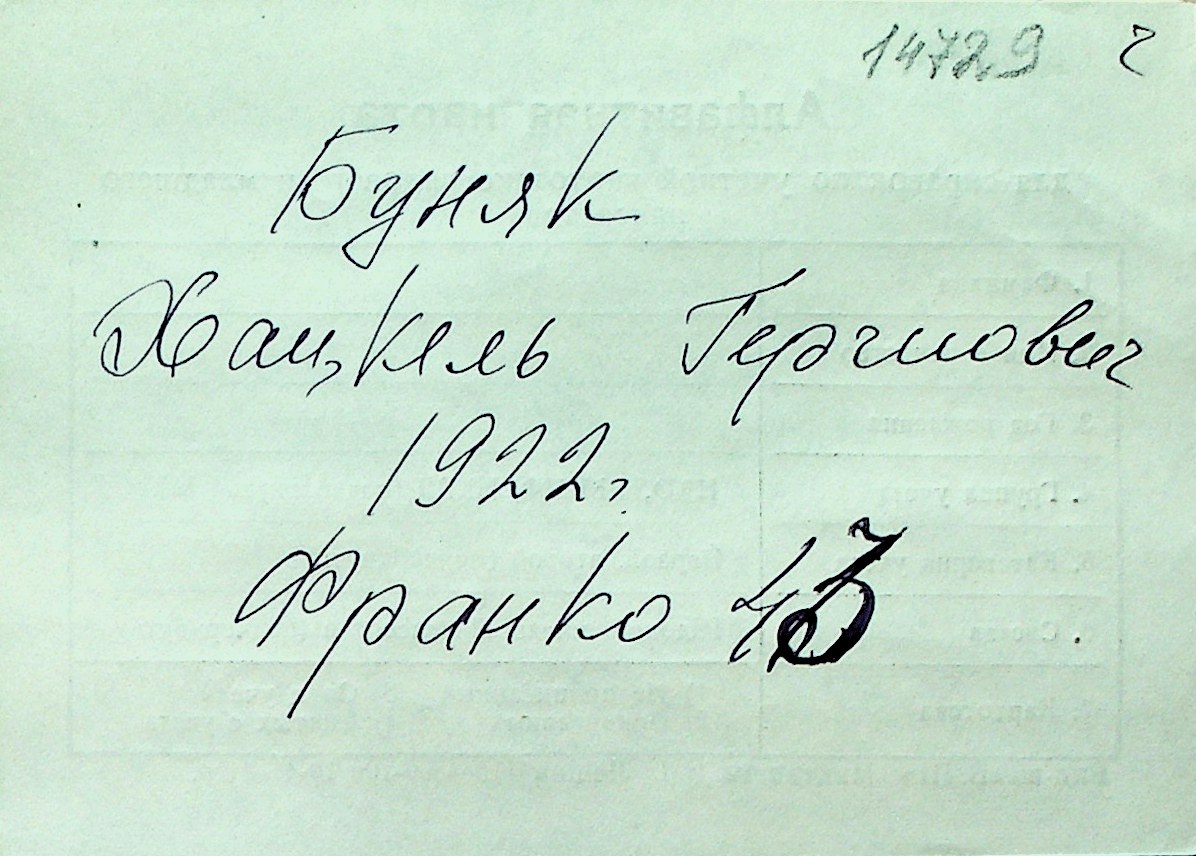 14729 ч
Буняк
Хацкель Гершович
1922г.
Франко 43